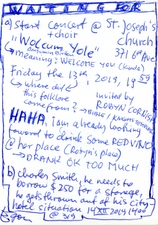 WAITING FOR
a) start concert @ St. Joseph's
+ choir
church
"Wolcum Yole"
371 6th Ave
meaning: WELCOME YOU
Friday the 13th, 2019, 19
where did
this folklore
come from?
invited by
ROBYN
HAHA, i am already looking
toward to drink some RED VINO
@ her place (Robyn's place)
→ DRANK OK TOO MUCH
b) charles smith, he needs
to borrow $250 for a storage,
he gets thrown out of his city
hotel situation. 14 XII 2019 1400